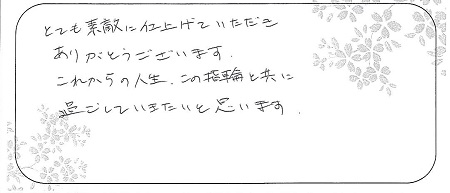 とても素敵に仕上げていただき
ありがとうございます.
これからの人生、この指輪と共に
過ごしていきたいと思います.